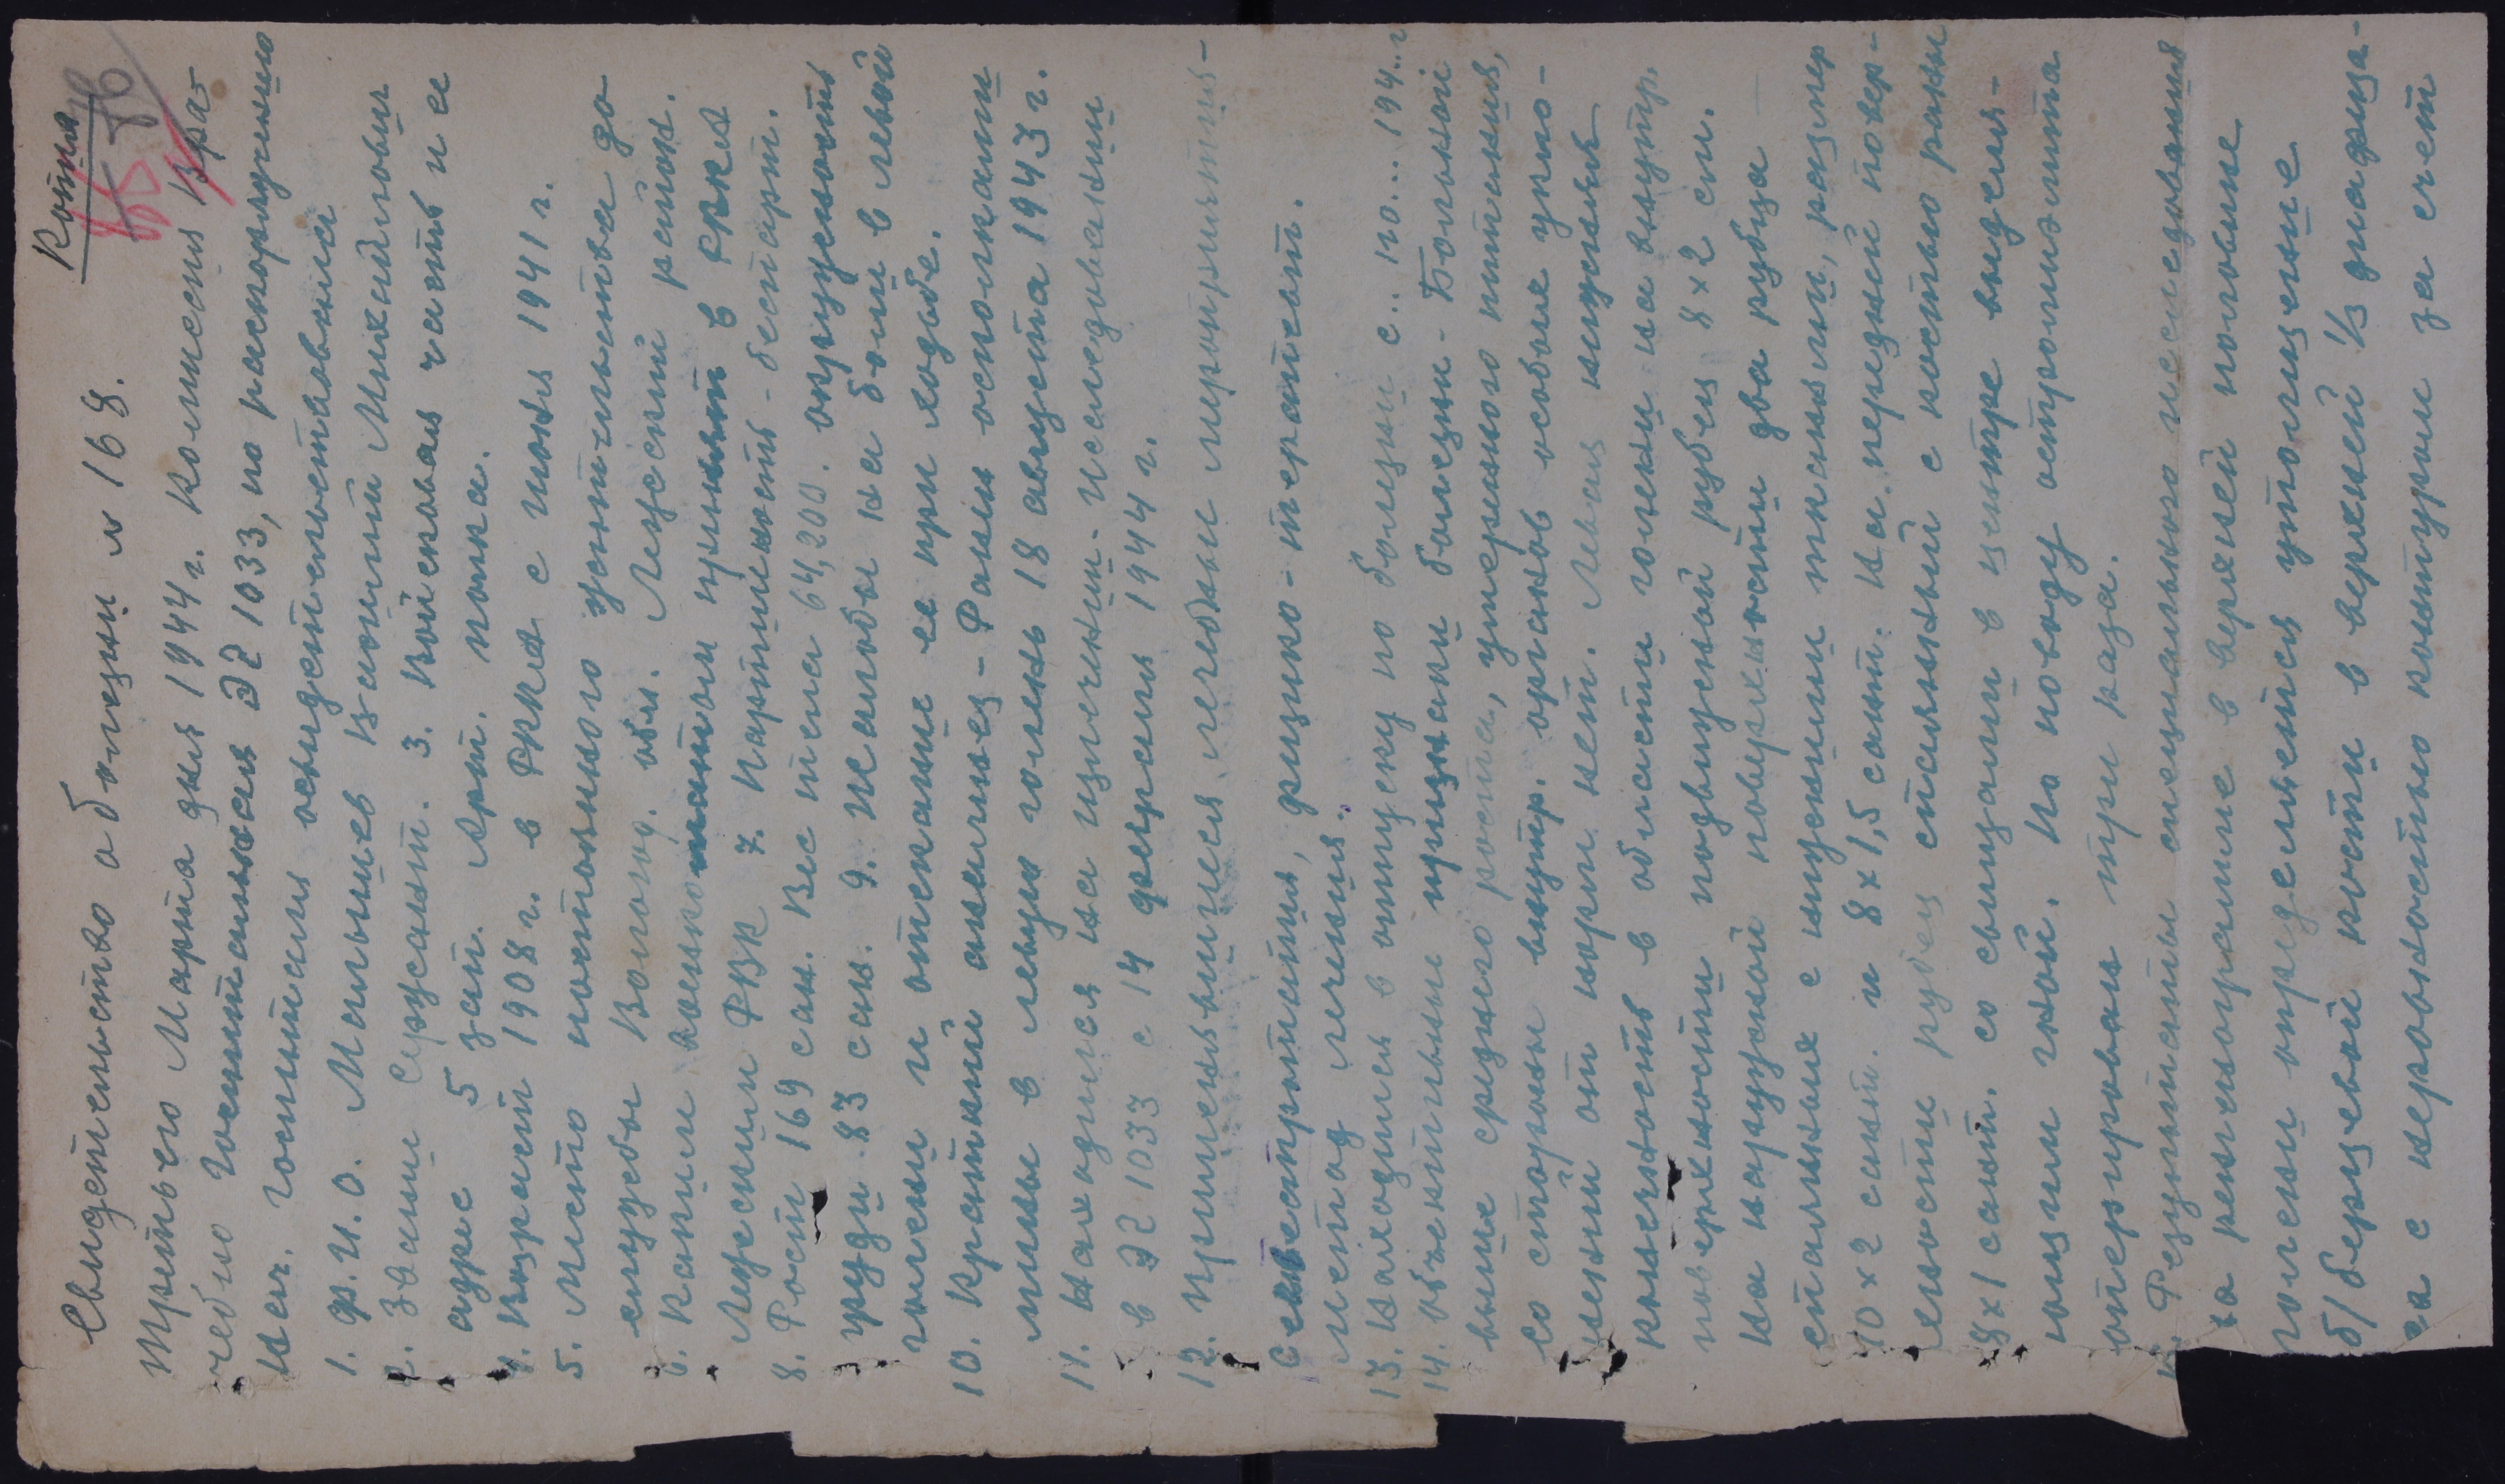 Копия
Свидетельство о болезни № 168.
Третьего Марта дня 1944 г. Комиссия Вра-
чебно Госпитальная ЭГ 1033, по распоряжению
нач. госпиталя освидетельствовала
1. Ф.И.О. Малышев Василий Михайлович
2. Звание Сержант. 3. Войсковая часть и ее
адрес 5 зап. Арт. полка.
4. Возраст 1908 г. в РККА с июня 1941 г.
5. Место постоянного жительства до
службы Вологод. обл. Лежский район.
6. Каким военкоматом призват в РККА
Лежским РВК 7. Партийность - беспарт.
8. Рост 169 сан. Вес тела 64,200. окружность
груди 83 сан. 9. Жалобы на боли в левой
голени и отекание ее при ходьбе.
10. Краткий анамнез - Ранен осколками
мины в левую голень 18 августа 1943 г.
11. Находился на излечении - исследовании
в ЭГ 1033 с 14 февраля 1944 г.
12. Применявшиеся лечебные мероприятия -
Консервотрапия, физио - терапет.
метод лечения.
13. Находился в отпуску по болезни с.. по... 194..г
14. Объективные признаки болезни - Больной
выше среднего роста, умеренного питания,
со стороны внутр. органов особые укло-
нений от нормы нет. Левая нижняя
конечность в области голени на внутр.
поверхности подвижной рубец 8 x 2 см.
На наружной поверхности два рубца
спаянные с мягкими тканями, размер
10 x 2 сант. и 8 x 1,5 сант. На передней повер-
хности рубец спаянный с костью раны
8 x 1 сант. со свищами в центре выделя-
ющим гной. По поводу остромиэлита
оперирован три раза.
15. Результаты специального исследования
на рентгенограмме в верхней половине
голени определяется утолщение
б/берцовой кости в верхней 1/3 диафиза-
за с неровностью контуром за счет